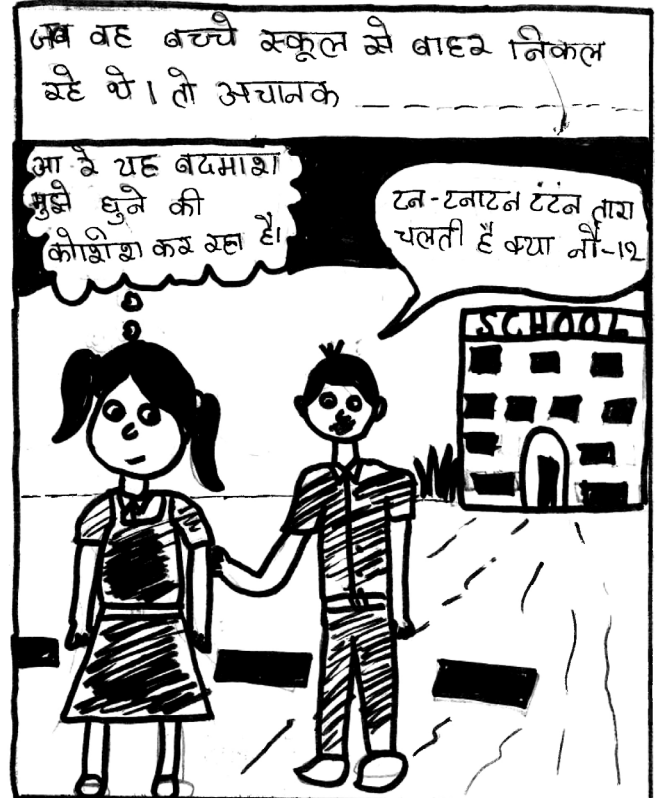 जब वह बच्चे स्कूल से बाहर निकल
रहे थे। तो अचानक
आ रे यह बदमाश
मुझे छुने की
कोशिश कर रहा है।
टन-टनाटन टंटंन तारा
चलती है क्या नौ-१२
SCHOOL